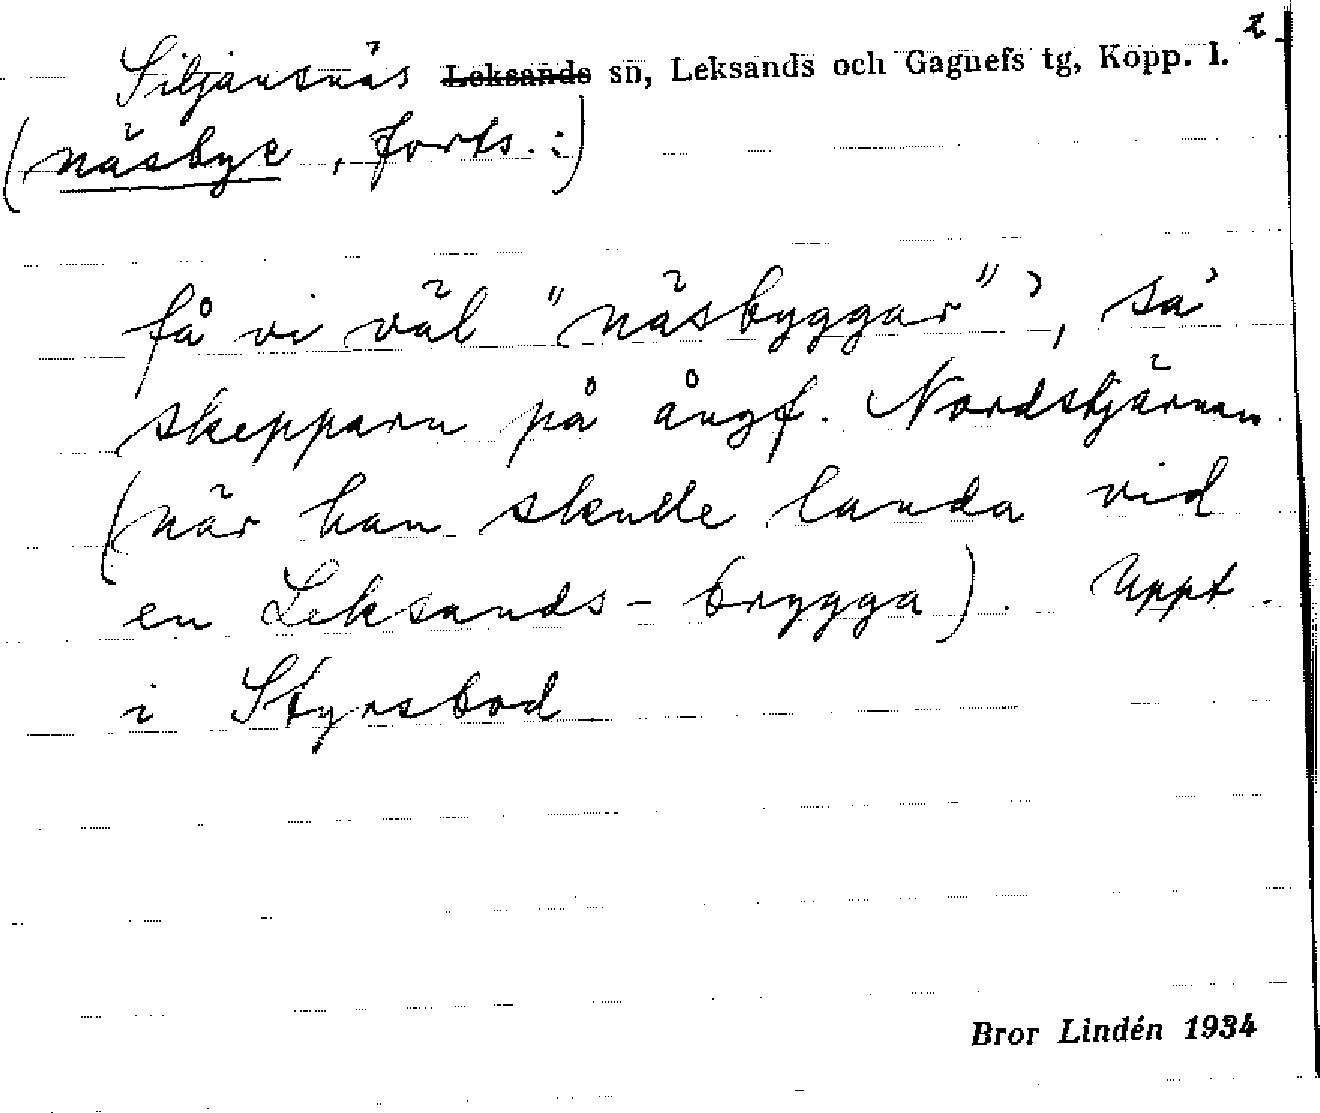 2.
Siljansnäs Leksands sn, Leksands och Gagnefs tg, Kopp. l.
(näsbyc, forts.:)
få vi väl "näsbyggar"', sa'
skepparn på ångf. Nordstjärnan
(när han skulle landa vid
en Leksands-brygga). Uppt.
i Styrsbod
Bror Lindén 1934